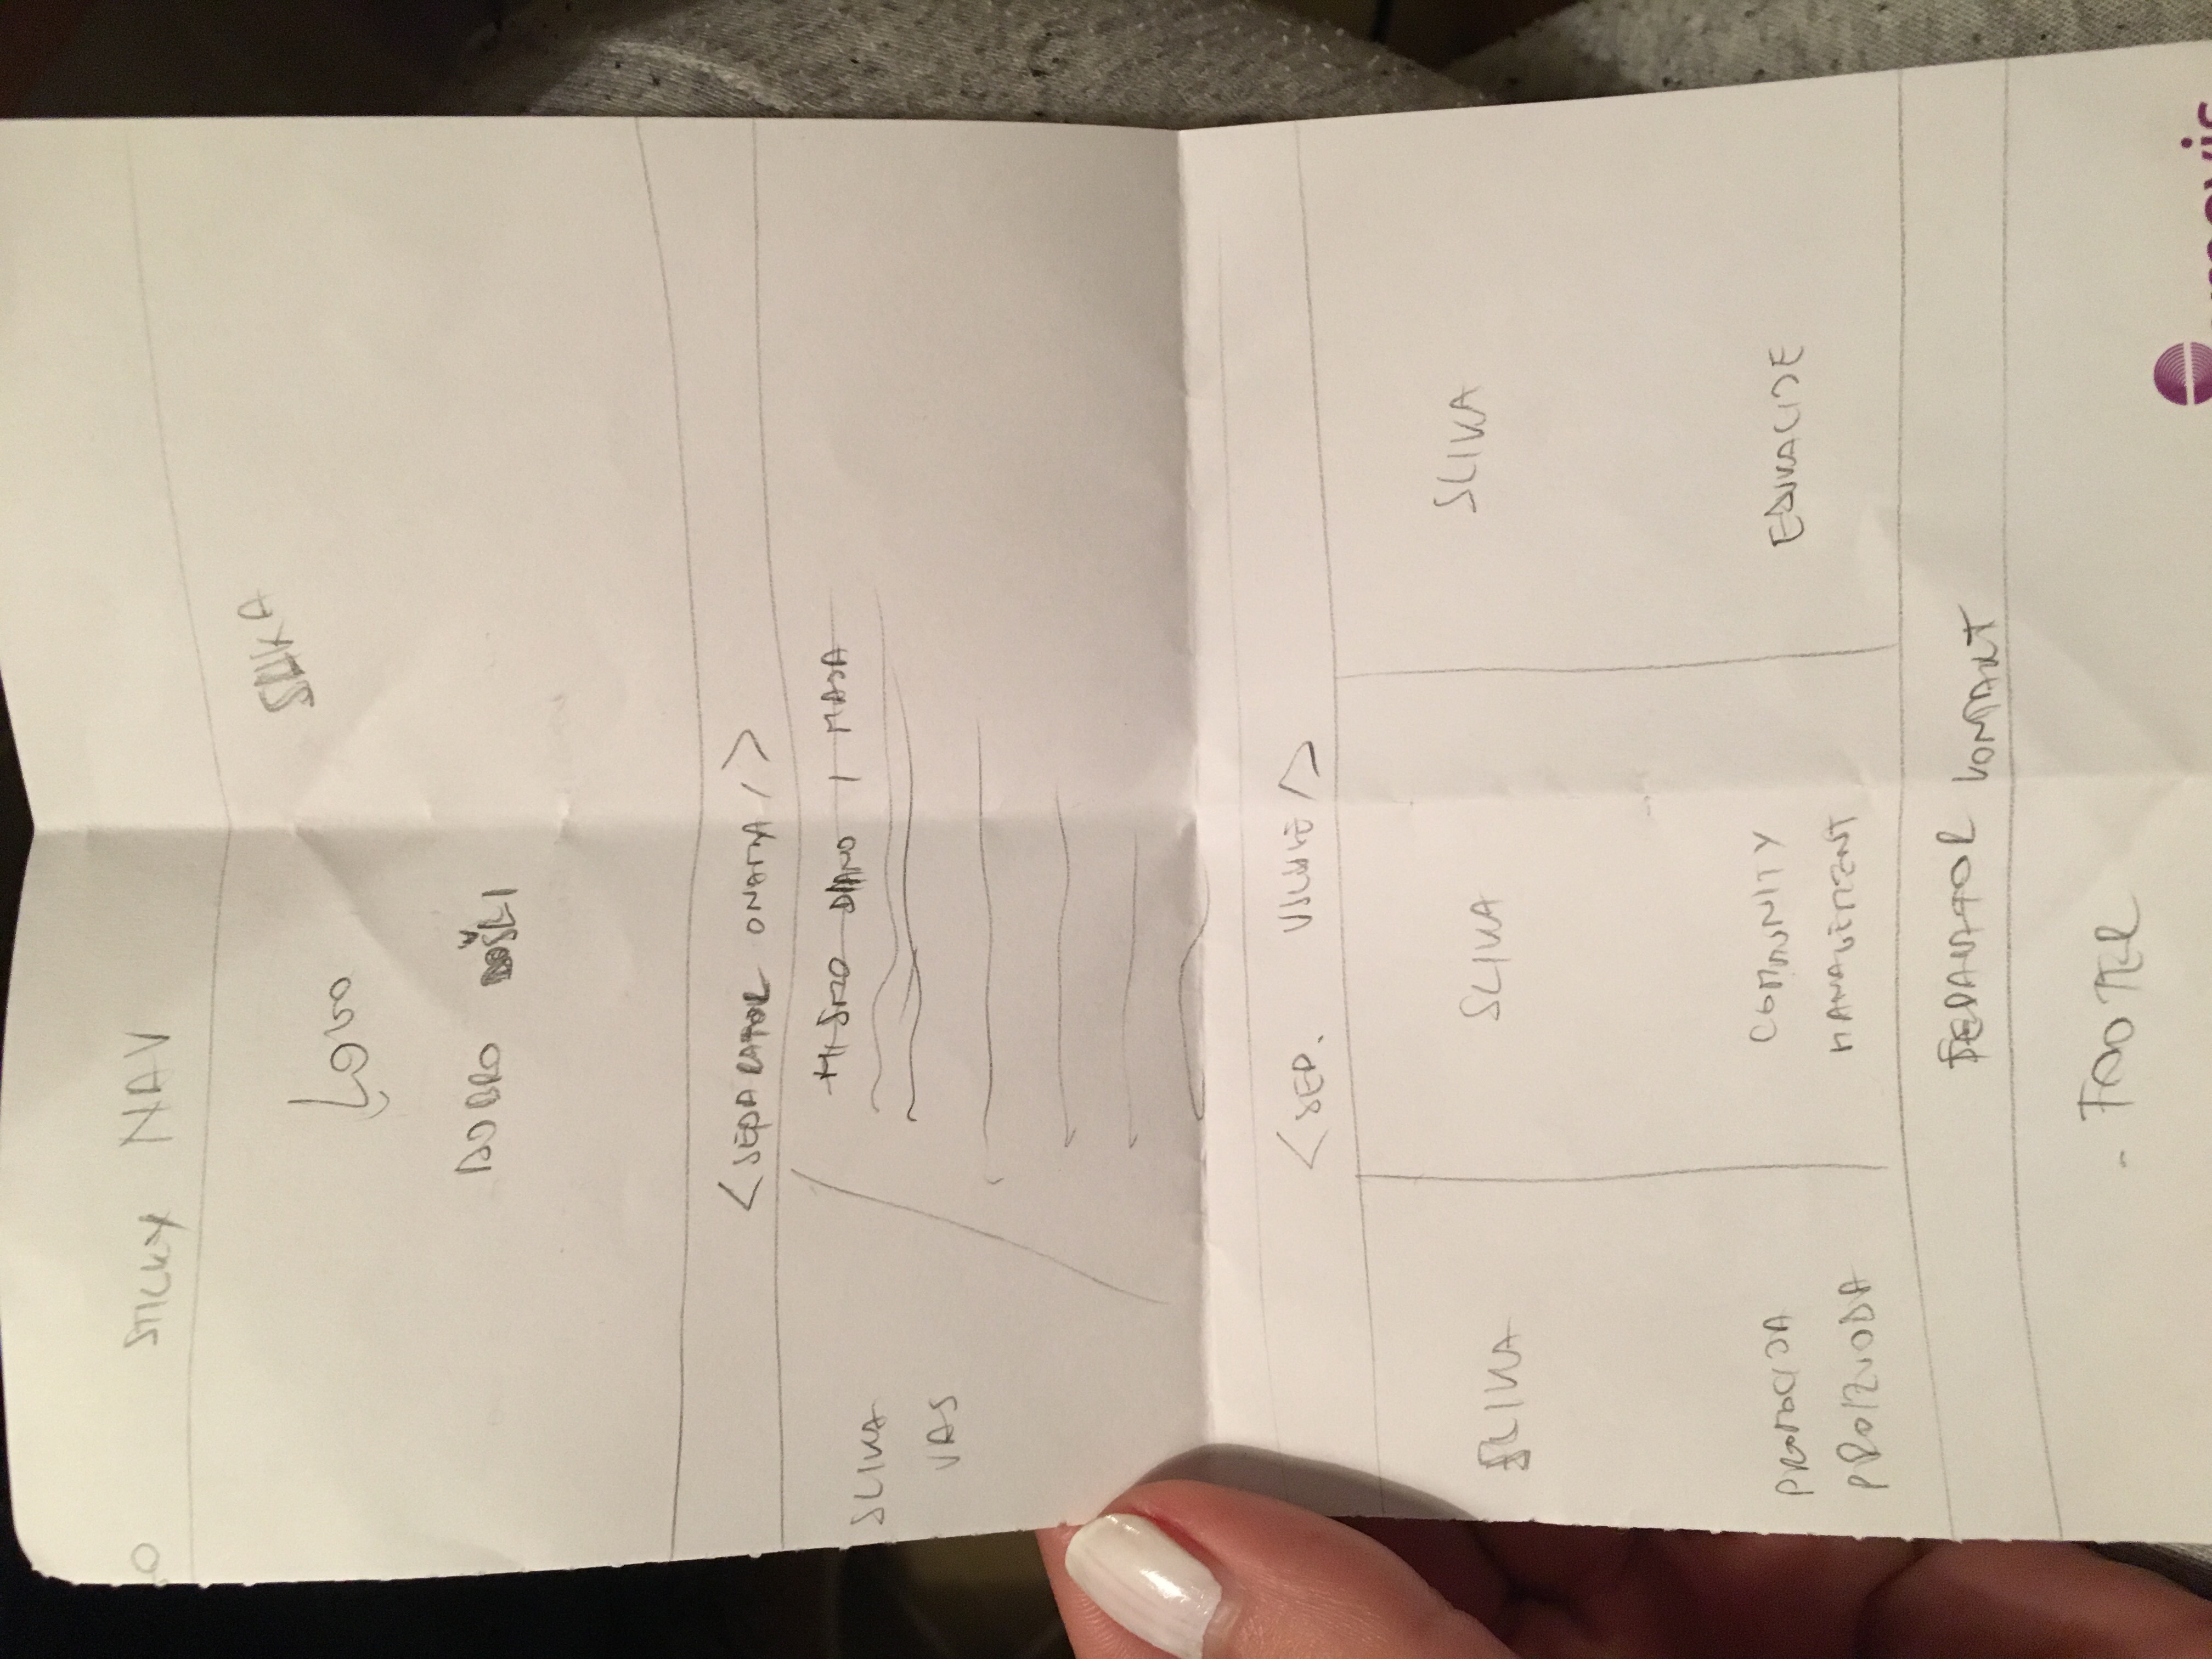 O STICKY NAV
SLIKA
LOGO
DOBRO DOŠLI
<SEPARATOR ONAMA/>
MI SMO DIANO I MAJA
SLIKA
VAS
<SEP. USLUGE/>
SLIKA SLIKA SLIKA
PROMOCIJA
PROIZVODA
COMMUNITY
MANAGEMENT
EDUKACIJE
SEPARATOR KONTAKT
- FOOTER